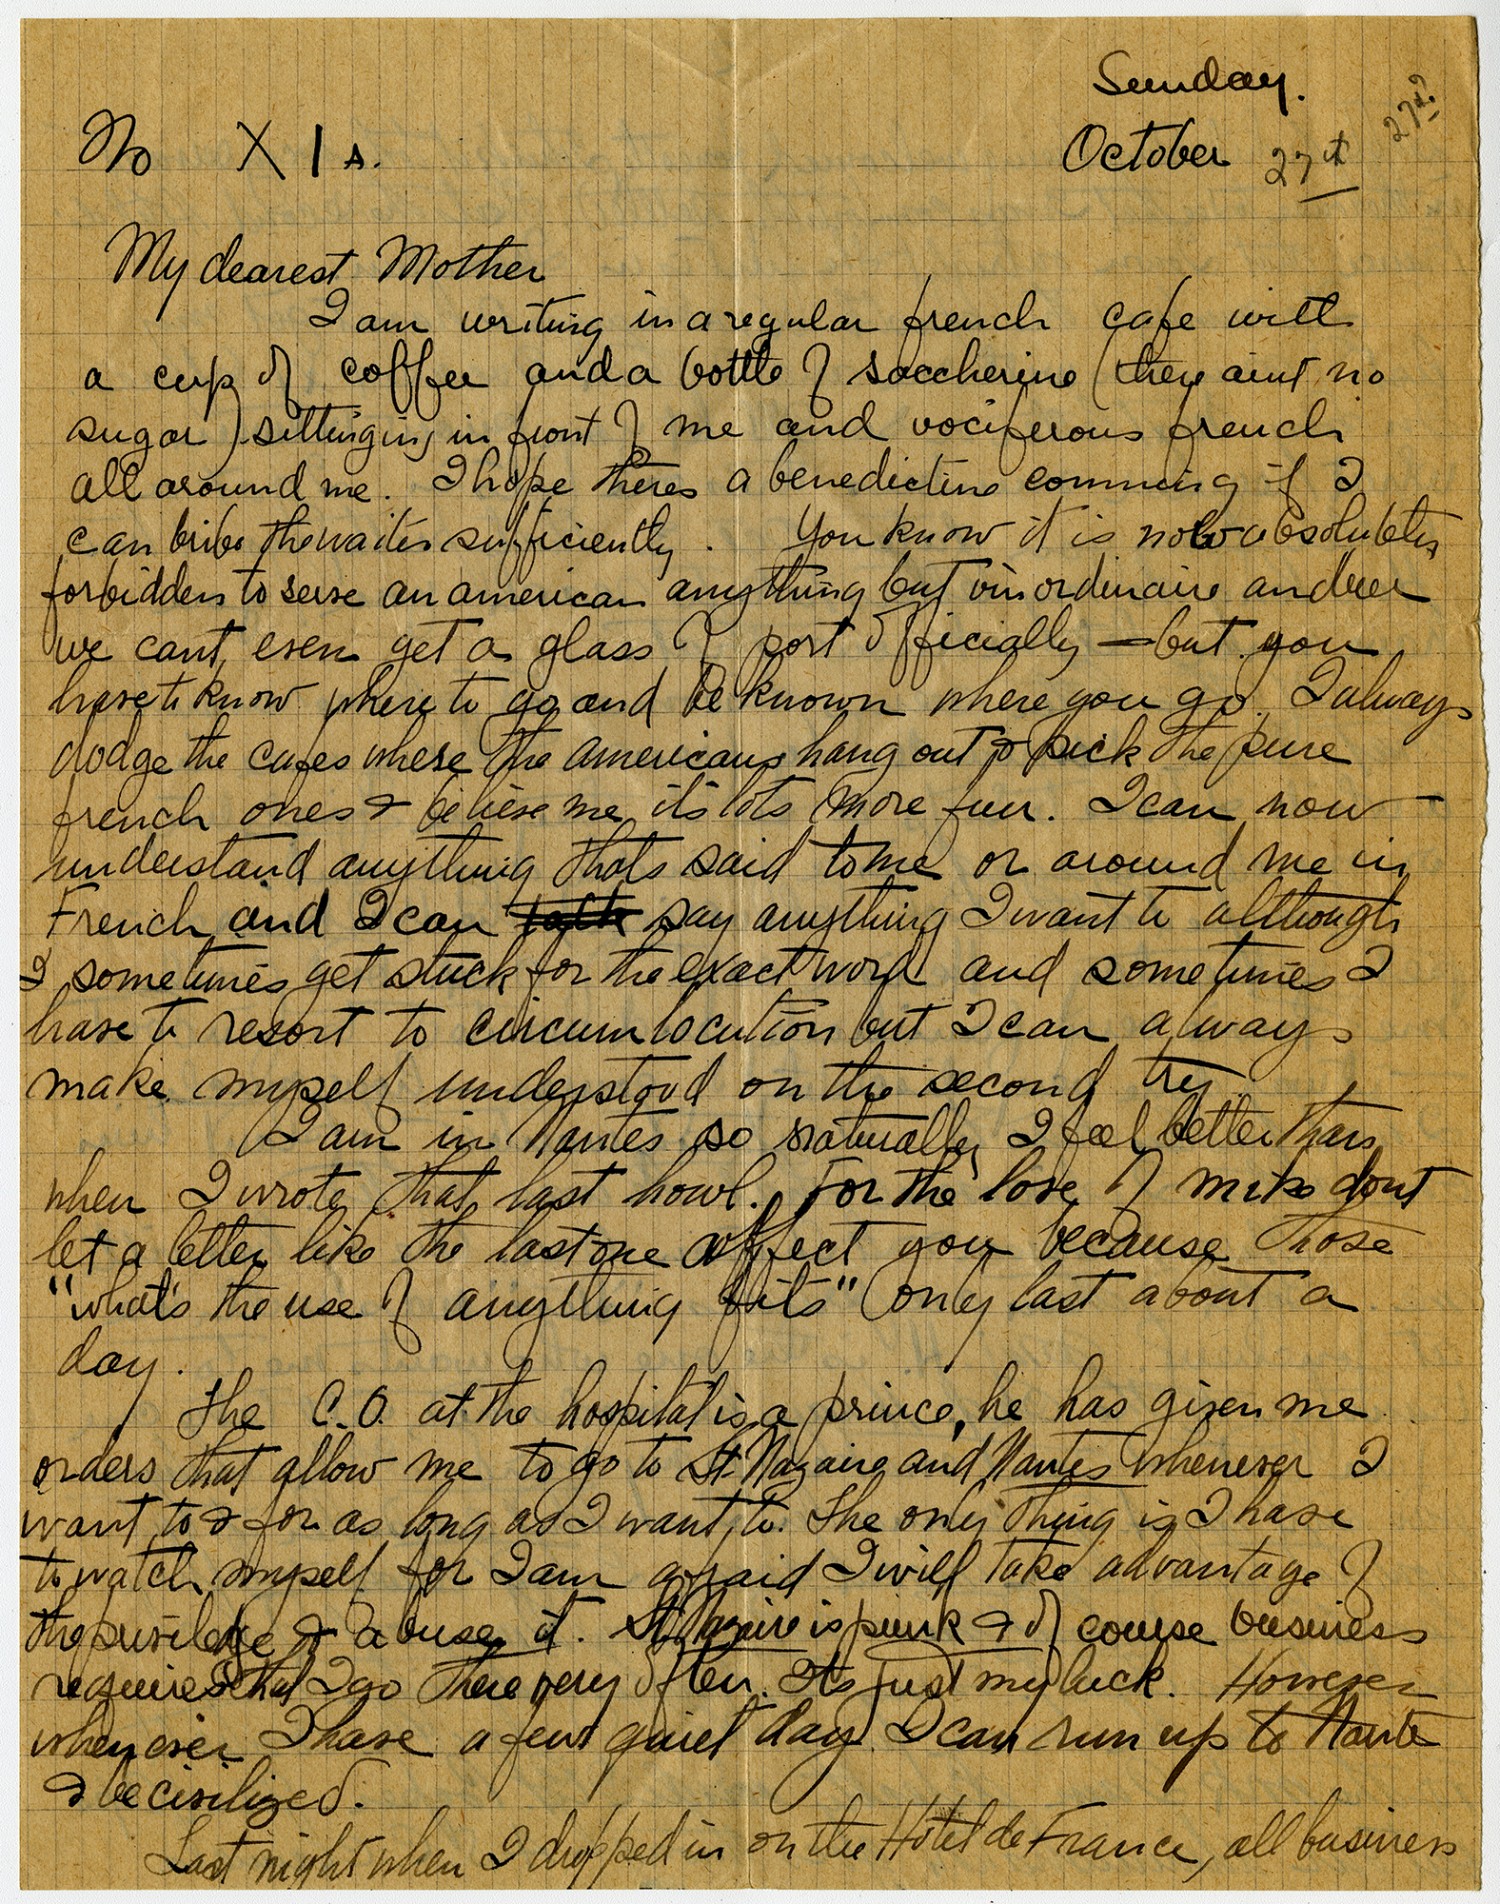 Sunday.
No XI s. October 27th 27th
My dearest Mother
I am writing in a regular french cafe with
a cup of coffee and a bottle of saccherine (they aint no
sugar) sittinging in front of me and vociferous french
all around me. I hope theres a benedictine comming if I
can bribe the waiter sufficiently. You know it is now absolutely
forbidden to serve an american anything but vin ordinaire and beer
we cant even get a glass of port officially — but you
have to know where to go and be known where you go. I always
dodge the cafes where the americans hang out & pick the pure
french ones & believe me its lots more fun. I can now
understand anything thats said to me or around me in
French and I can talk say anything I want to although
I sometimes get stuck for the exact word and sometimes I
have to resort to circumlocution but I can always
make myself understood on the second try.
I am in Nantes so naturally I feel better than
when I wrote that last howl. For the love of mike dont
let a letter like the last one affect you because those
"what's the use of anything fits" only last about a
day.
The C.O. at the hospital is a prince, he has given me
orders that allow me to go to St. Nazaire and Nantes whenever I
want to & for as long as I want to. The only thing is I have
to watch myself for I am afraid I will take advantage of
the priviledge & abuse it. St Nazaire is punk & of course business
requires that I go there very often. Its just my luck. However
whenever I have a few quiet days I can run up to Nantes
& be civilized.
Last night when I dropped in on the Hôtel de France, all business